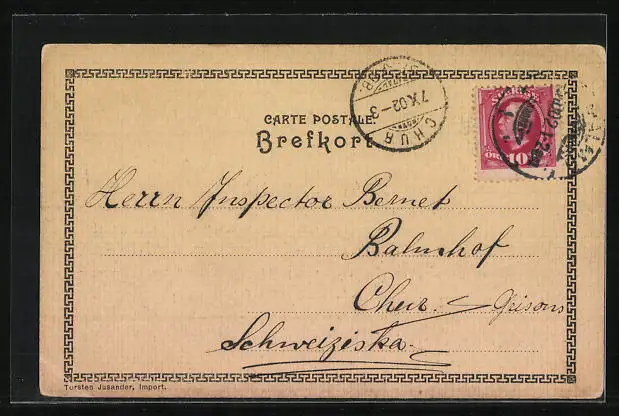 CARTE POSTALE.
Brefkort
CHUR
7.X.02-3
SVERIGE
10
ÖRE
Herrn Inspector Bernet
Bahnhof
Chur. Grisons
Schweiziska
Torsten Jusander, Import.